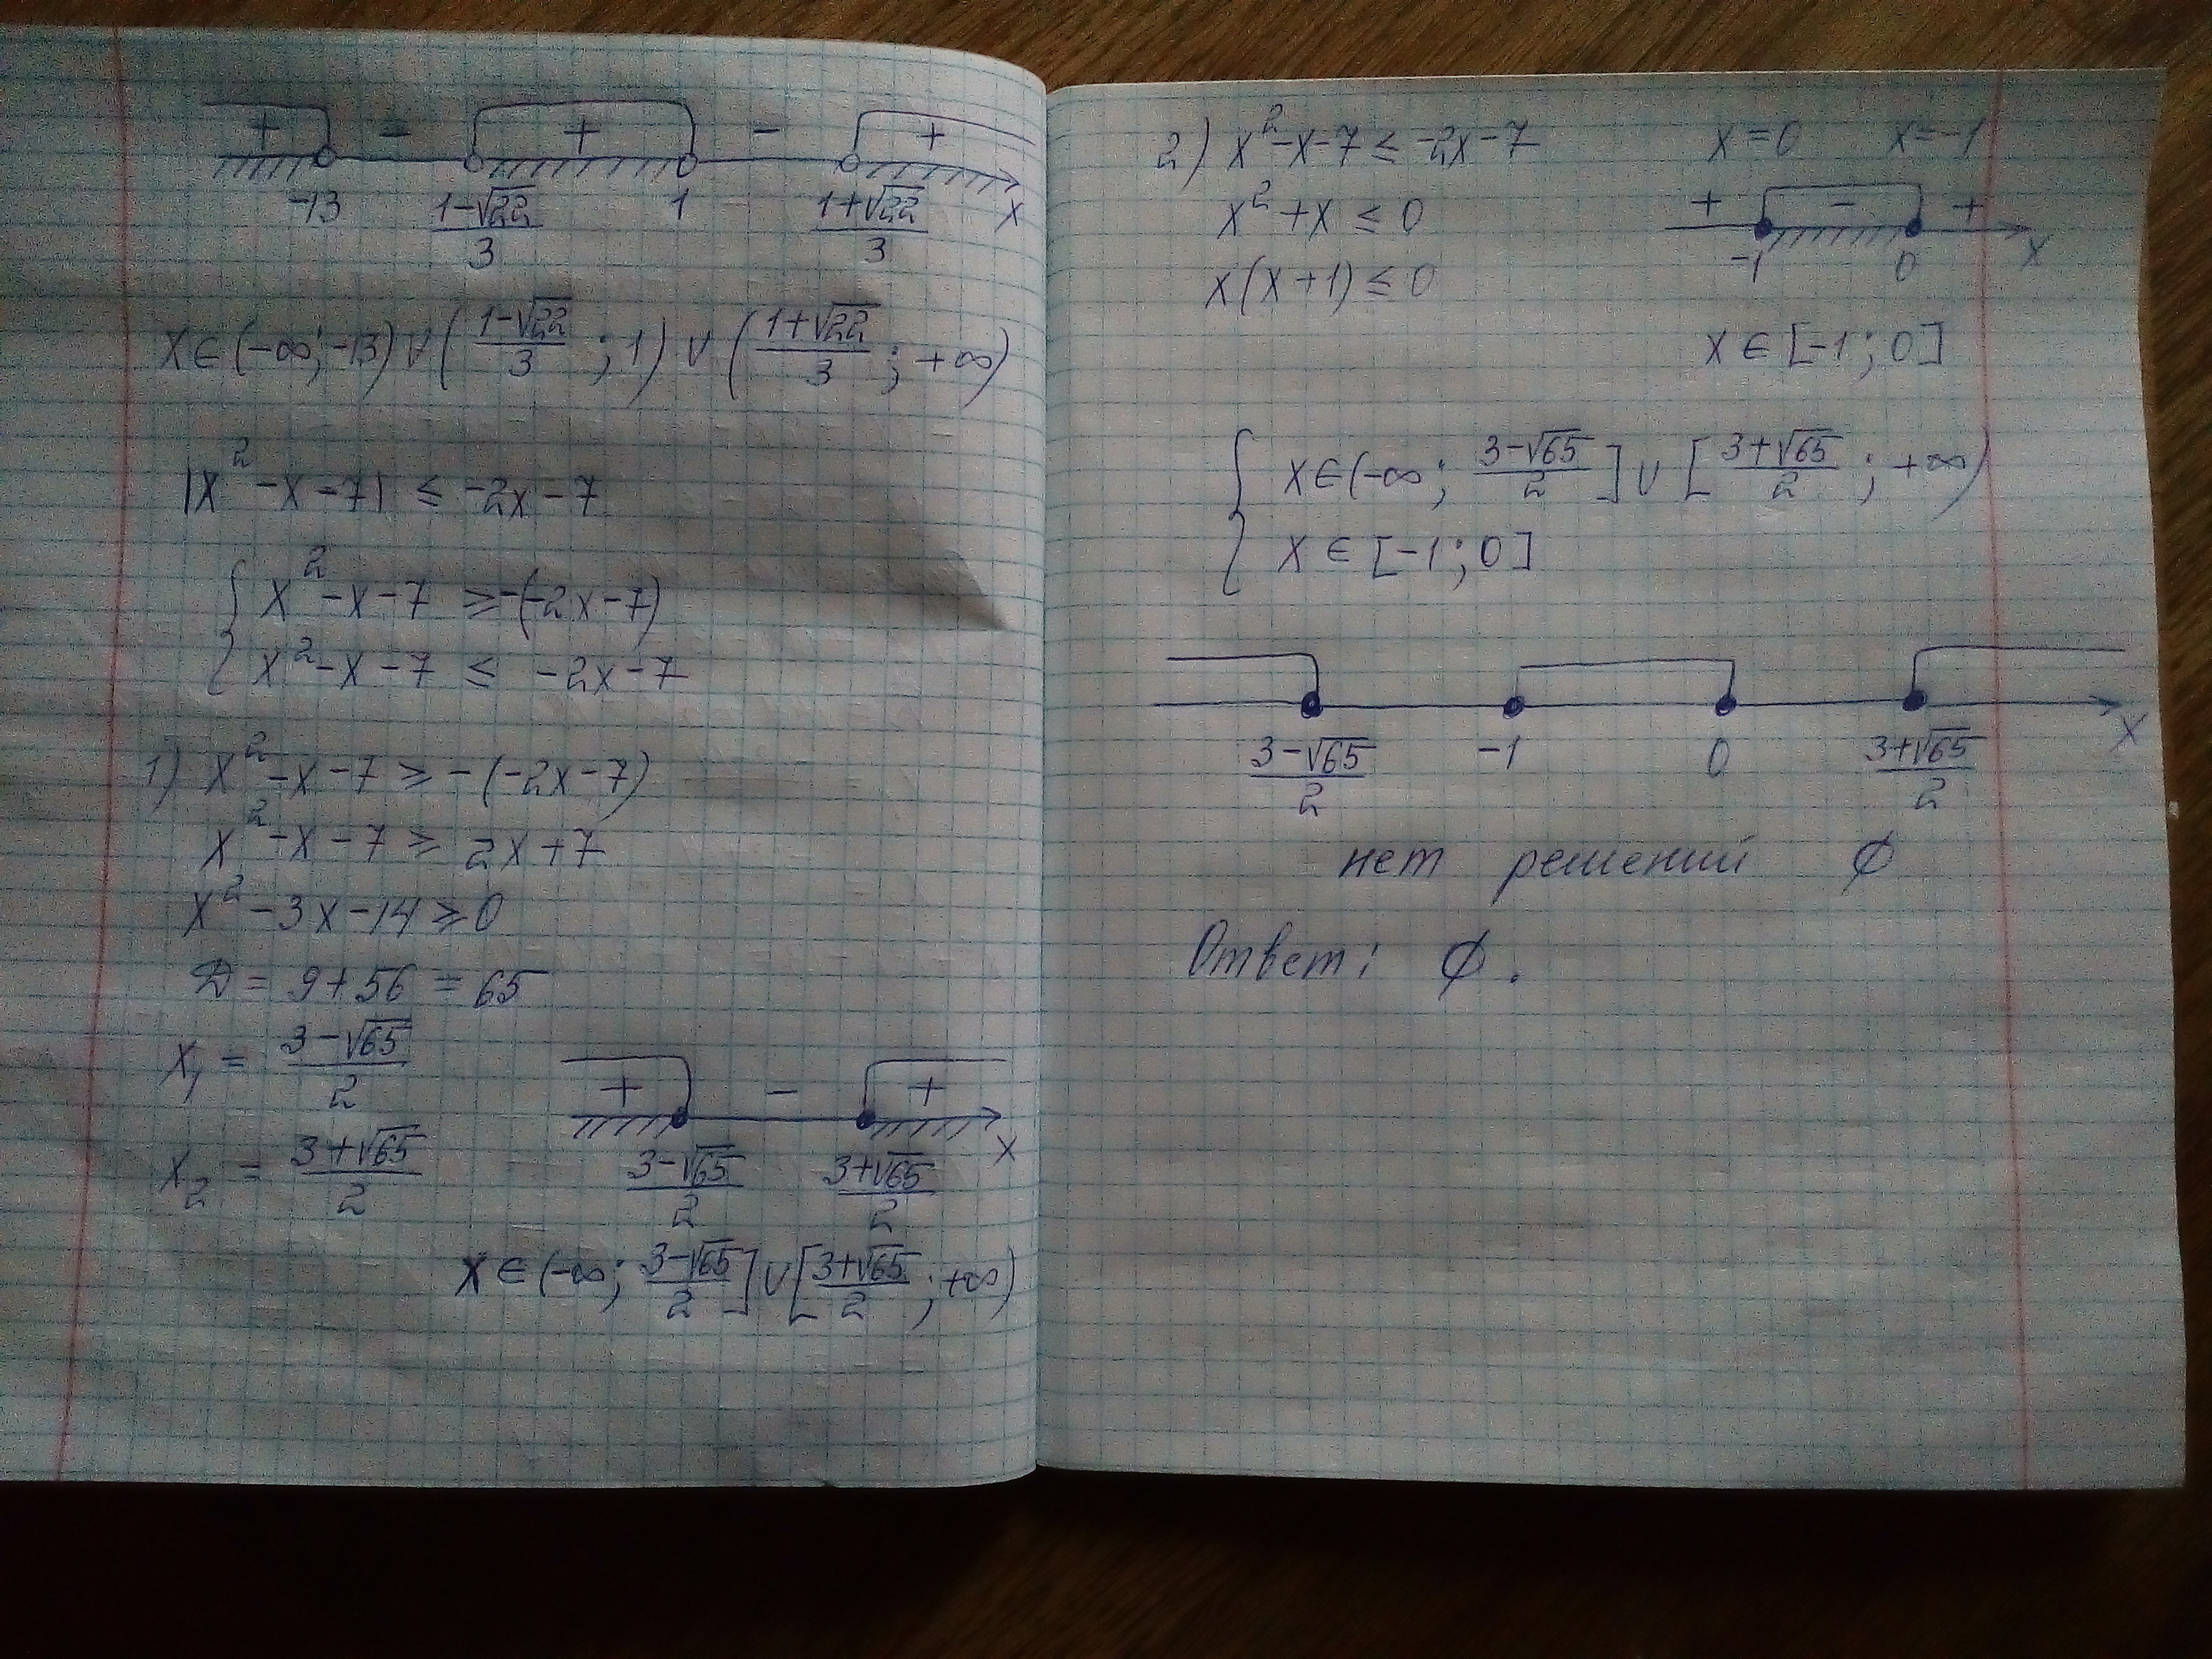 + - + - +
-13 (1-√22)/3 1 (1+√22)/3 x
x∈(-∞;-13)∪((1-√22)/3;1)∪((1+√22)/3;+∞)
|x²-x-7| ≤ -2x-7
{ x²-x-7 ≥ -(-2x-7)
x²-x-7 ≤ -2x-7
1) x²-x-7 ≥ -(-2x-7)
x²-x-7 ≥ 2x+7
x²-3x-14 ≥ 0
D = 9+56 = 65
x₁ = (3-√65)/2
x₂ = (3+√65)/2
+ - +
(3-√65)/2 (3+√65)/2 x
x∈(-∞; (3-√65)/2]∪[(3+√65)/2; +∞)
2) x²-x-7 ≤ -2x-7
x²+x ≤ 0
x(x+1) ≤ 0
x=0 x=-1
+ - +
-1 0 x
x∈[-1;0]
{ x∈(-∞; (3-√65)/2]∪[(3+√65)/2; +∞)
x∈[-1;0]
(3-√65)/2 -1 0 (3+√65)/2 x
нет решений ∅
Ответ: ∅.